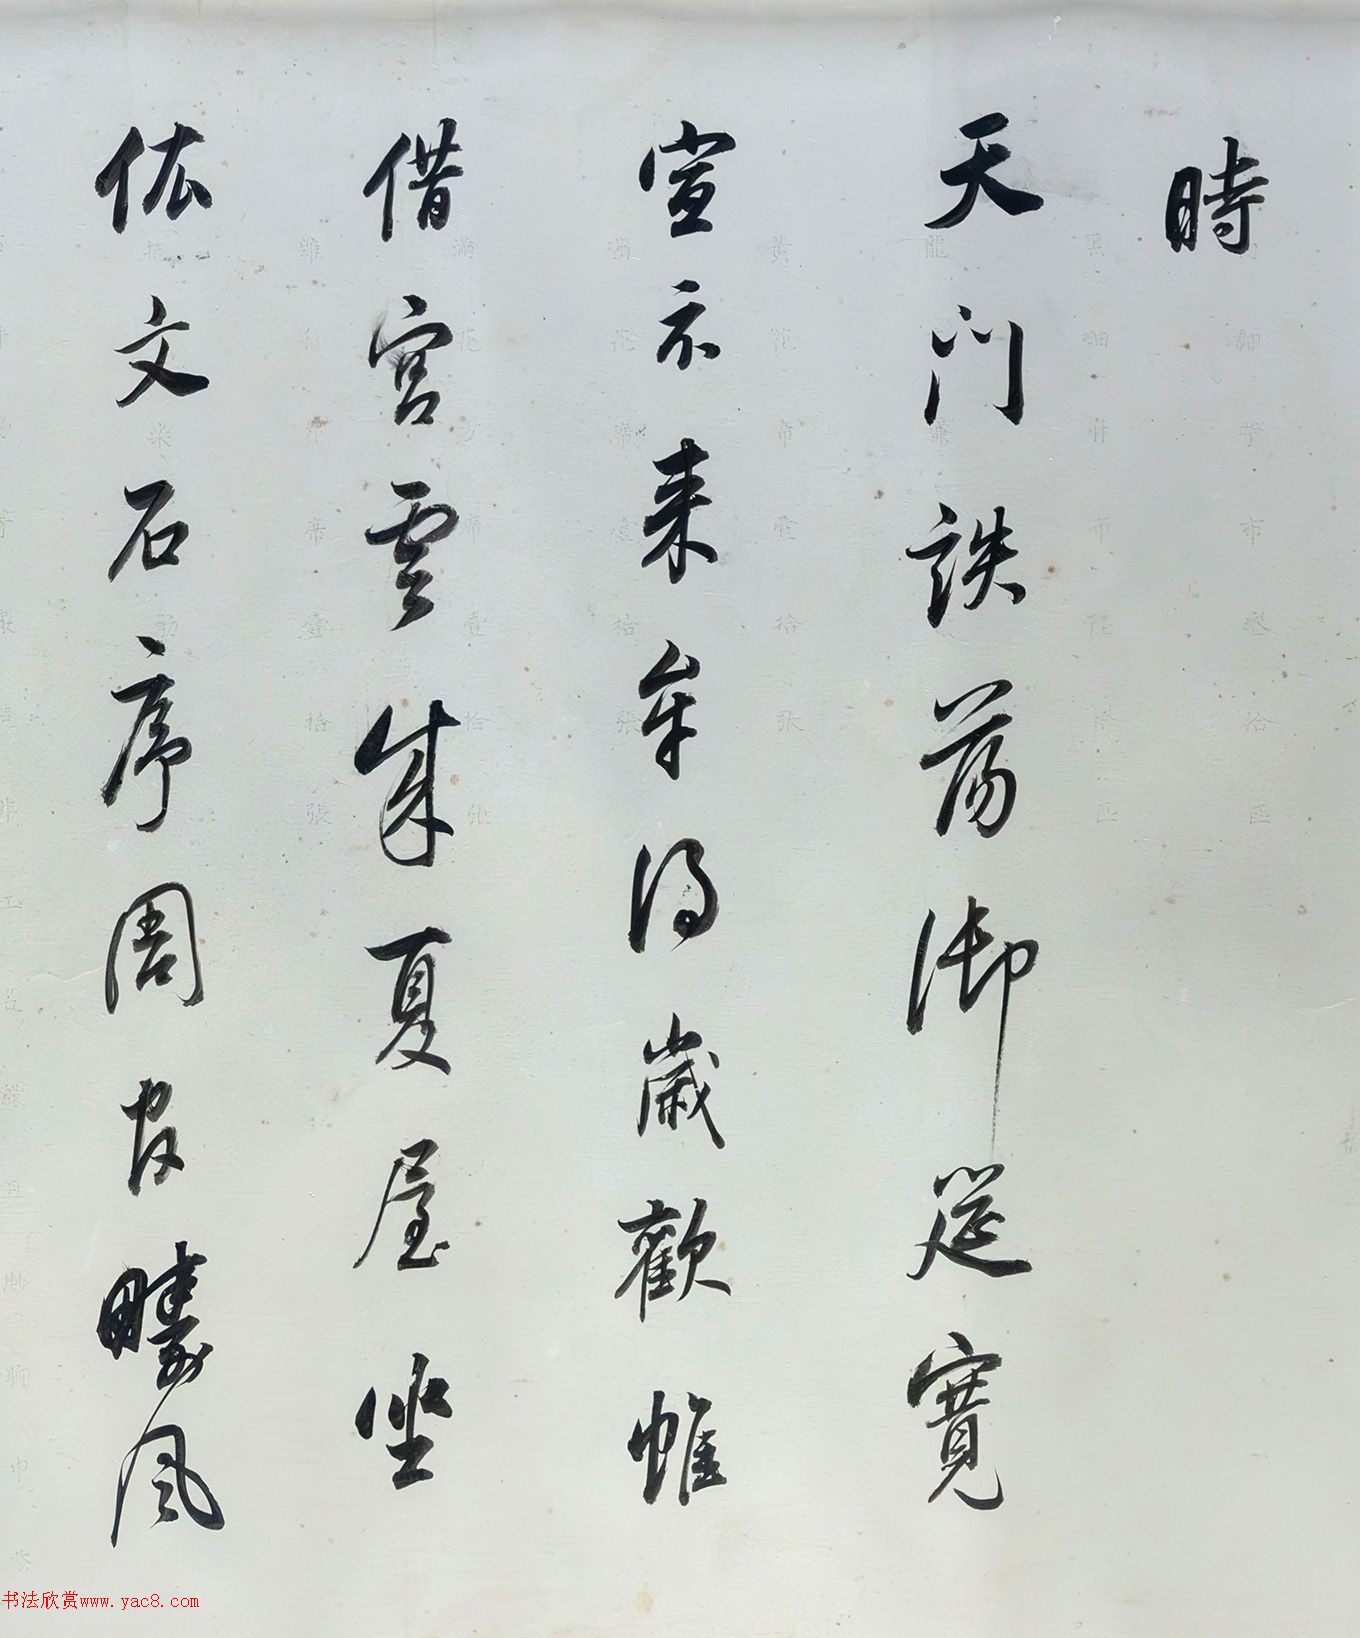 時
天門詄蕩御筵寬
宣示來牟得歲歡帷
借宮雲成夏屋坐
依文石序周官豳風
书法欣赏www.yac8.com